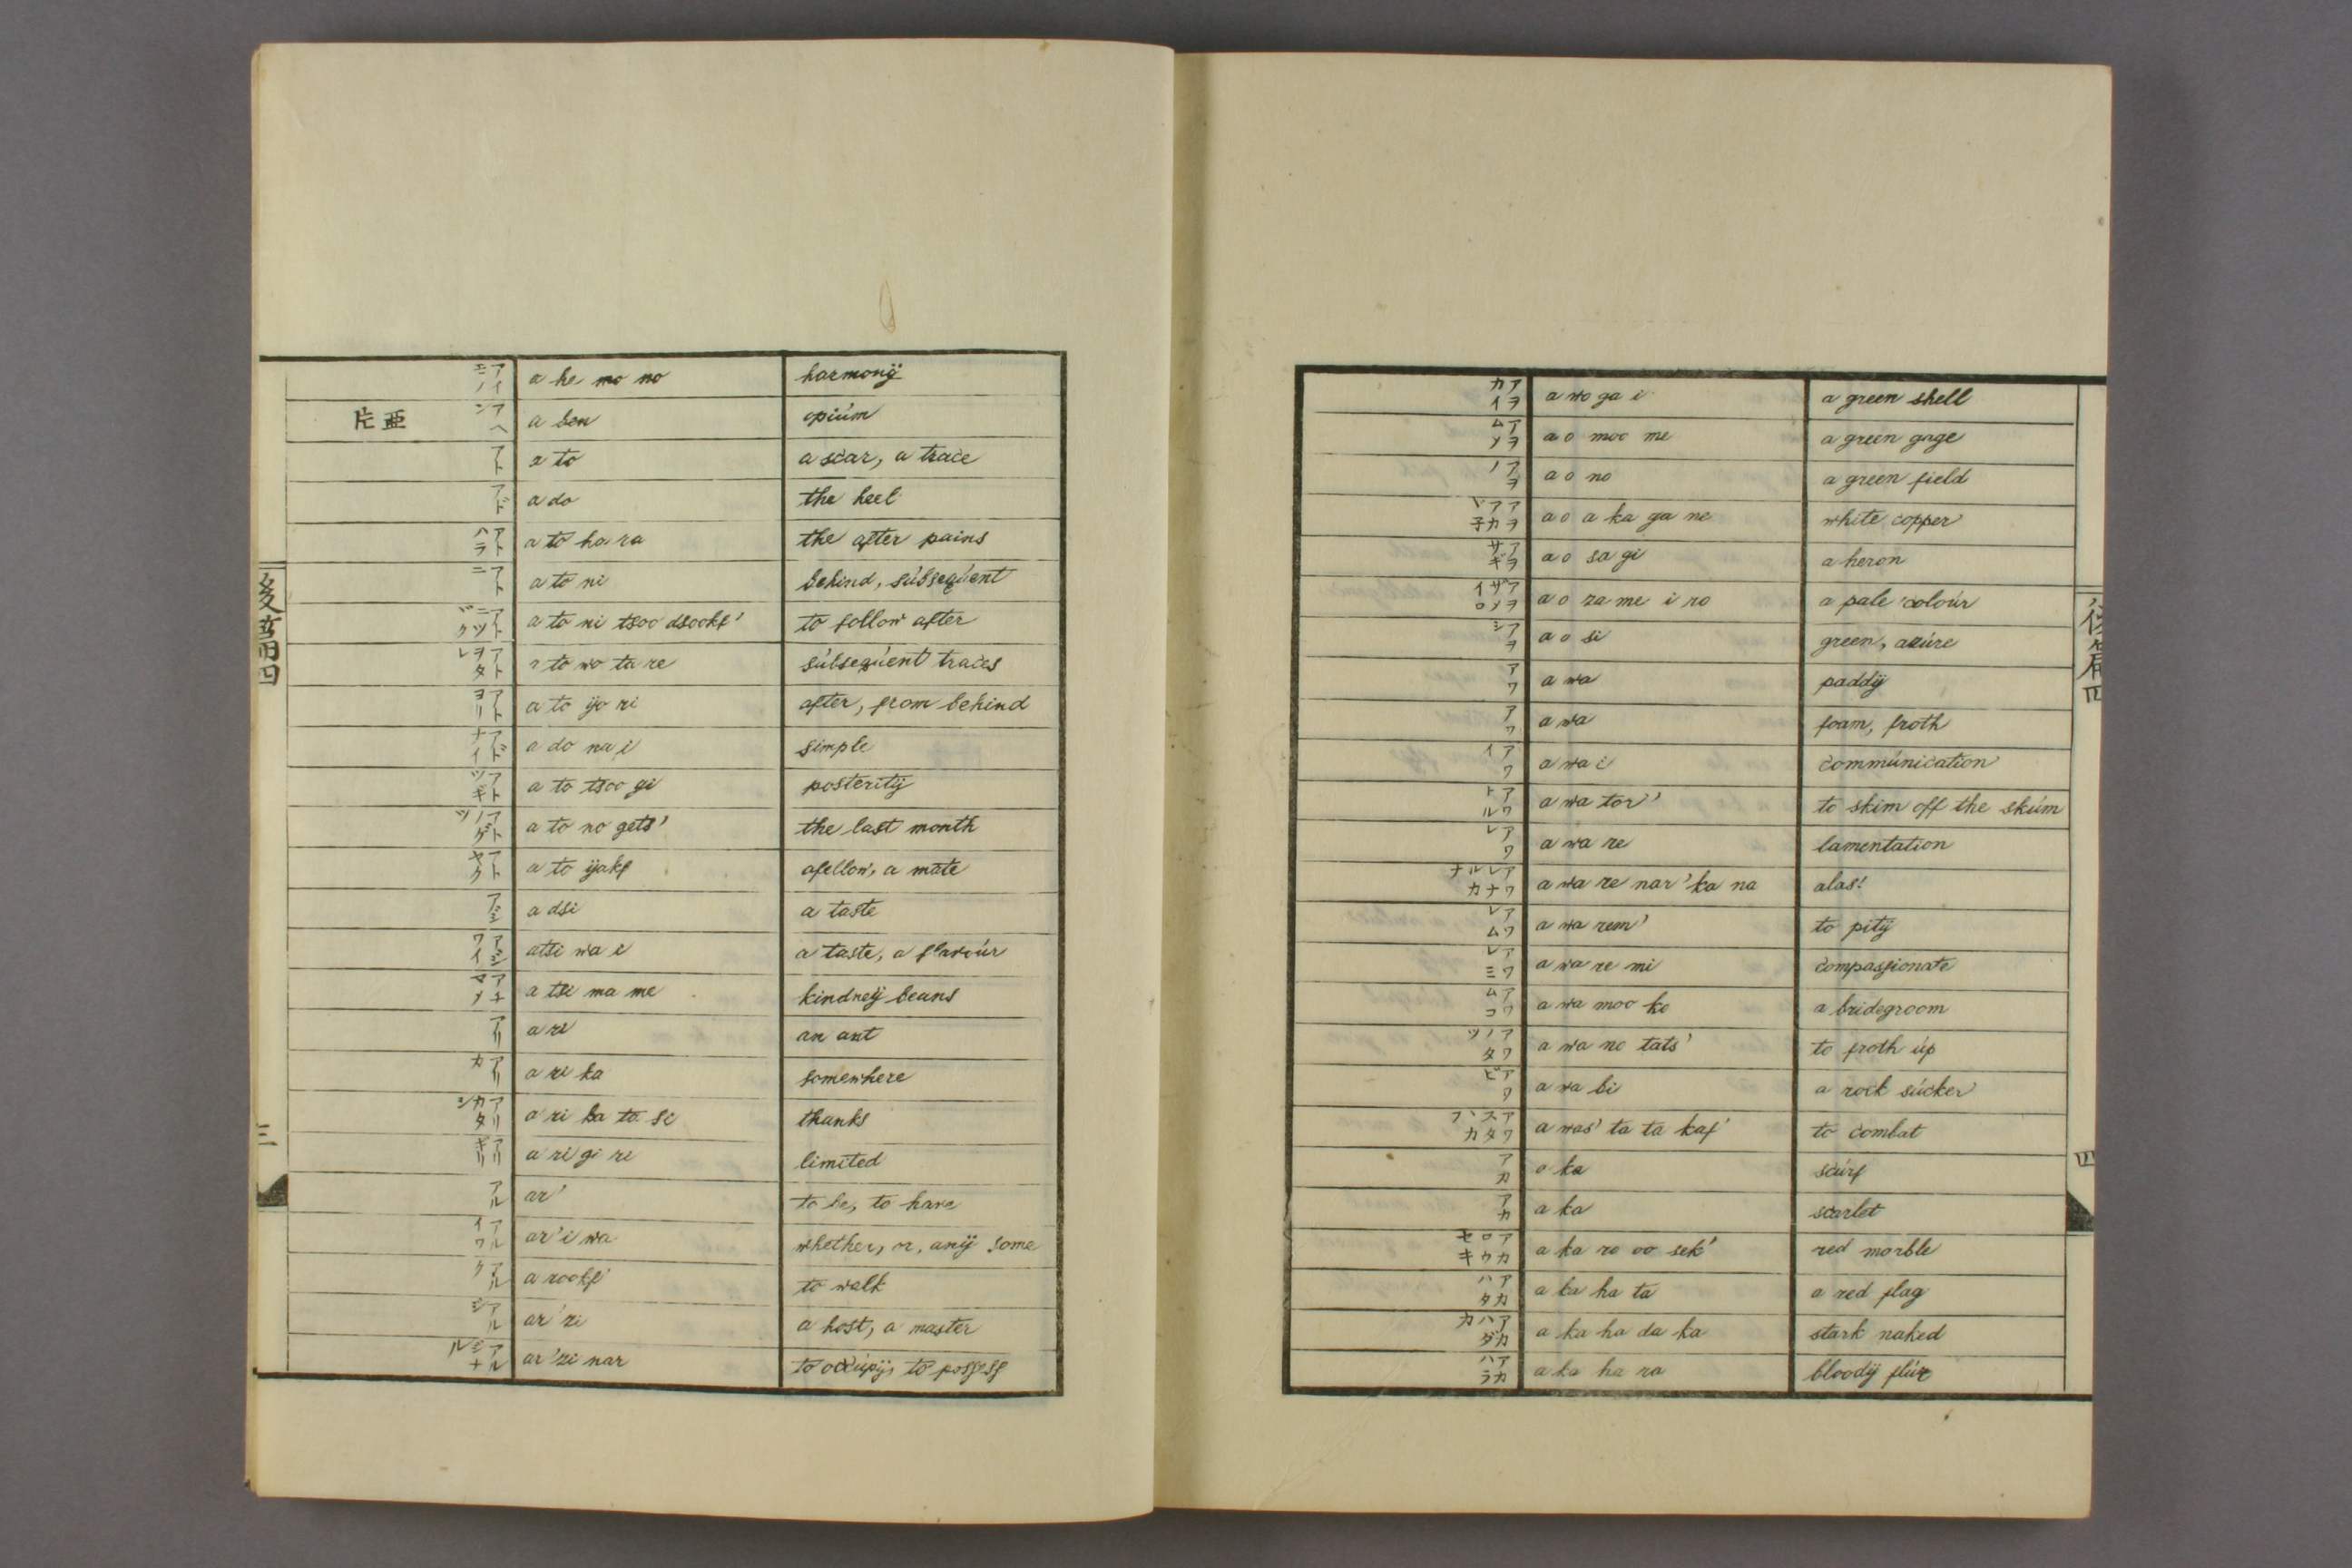 アイモノ a he mo no harmonij
亜片 アヘン a ben opiúm
アト a to a scar, a trace
アド a do the heel
アトハラ a to ha ra the after pains
アトニ a to ni behind, súbseqúent
アトニツヅク a to ni tsoo dsookf' to follow after
アトヲタレ a to wo ta re súbseqúent traces
アトヨリ a to ijo ri after, from behind
アドナイ a do na i simple
アトツギ a to tsoo gi posteritij
アトノゲツ a to no gets' the last month
アトヤク a to ijakf afellow, a mate
アジ a dsi a taste
アジワイ atsi wa i a taste, a flavoúr
アチマメ a tsi ma me kindneij beans
アリ a ri an ant
アリカ a ri ka somewhere
アリカタシ a ri ka ta si thanks
アリギリ a ri gi ri limited
アル ar' to be, to have
アルイワ ar' i wa whether, or, anij some
アルク a rookf' to walk
アルジ ar' zi a host, a master
アルジナル ar' zi nar to occúpij, to possess
後篇四
三
アヲカイ a wo ga i a green shell
アヲムメ a o moo me a green gage
アヲノ a o no a green field
アヲアカヾ子 a o a ka ga ne white copper
アヲサギ a o sa gi a heron
アヲザメイロ a o za me i ro a pale coloúr
アヲシ a o si green, azúre
アワ a wa paddij
アワ a wa foam, froth
アワイ a wa i commúnication
アワトル a wa tor' to skim off the skúm
アワレ a wa re lamentation
アワレナルカナ a wa re nar' ka na alas!
アワレム a wa rem' to pitij
アワレミ a wa re mi compassionate
アワムコ a wa moo ko a bridegroom
アワノタツ a wa no tats' to froth úp
アワビ a wa bi a rock súcker
アワスタヽカフ a was' ta ta kaf' to combat
アカ a ka scúrf
アカ a ka scarlet
アカロウセキ a ka ro oo sek' red morble
アカハタ a ka ha ta a red flag
アカハダカ a ka ha da ka stark naked
アカハラ a ka ha ra bloodij flúx
後篇四
四